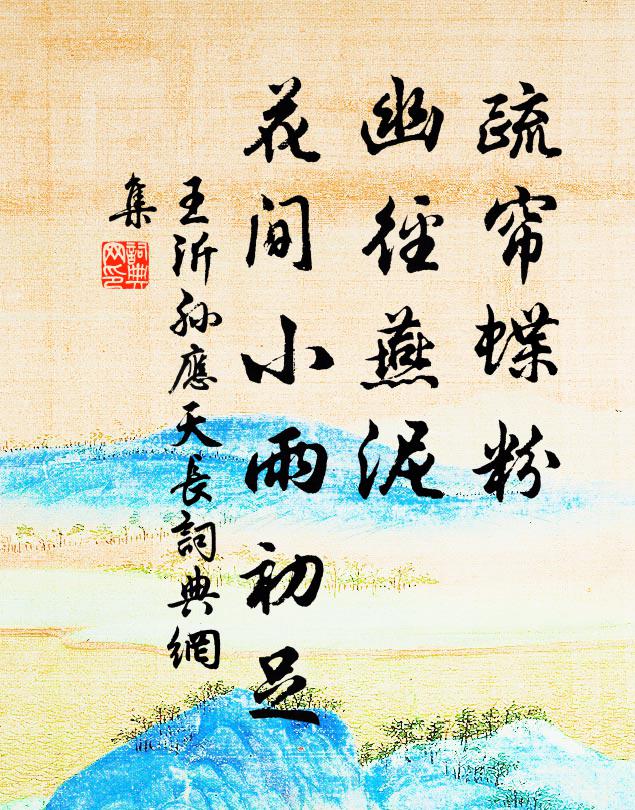 疏帘蝶粉
幽徑燕泥
花間小雨初足
王沂孙應天長詞典網
集
詞典網印